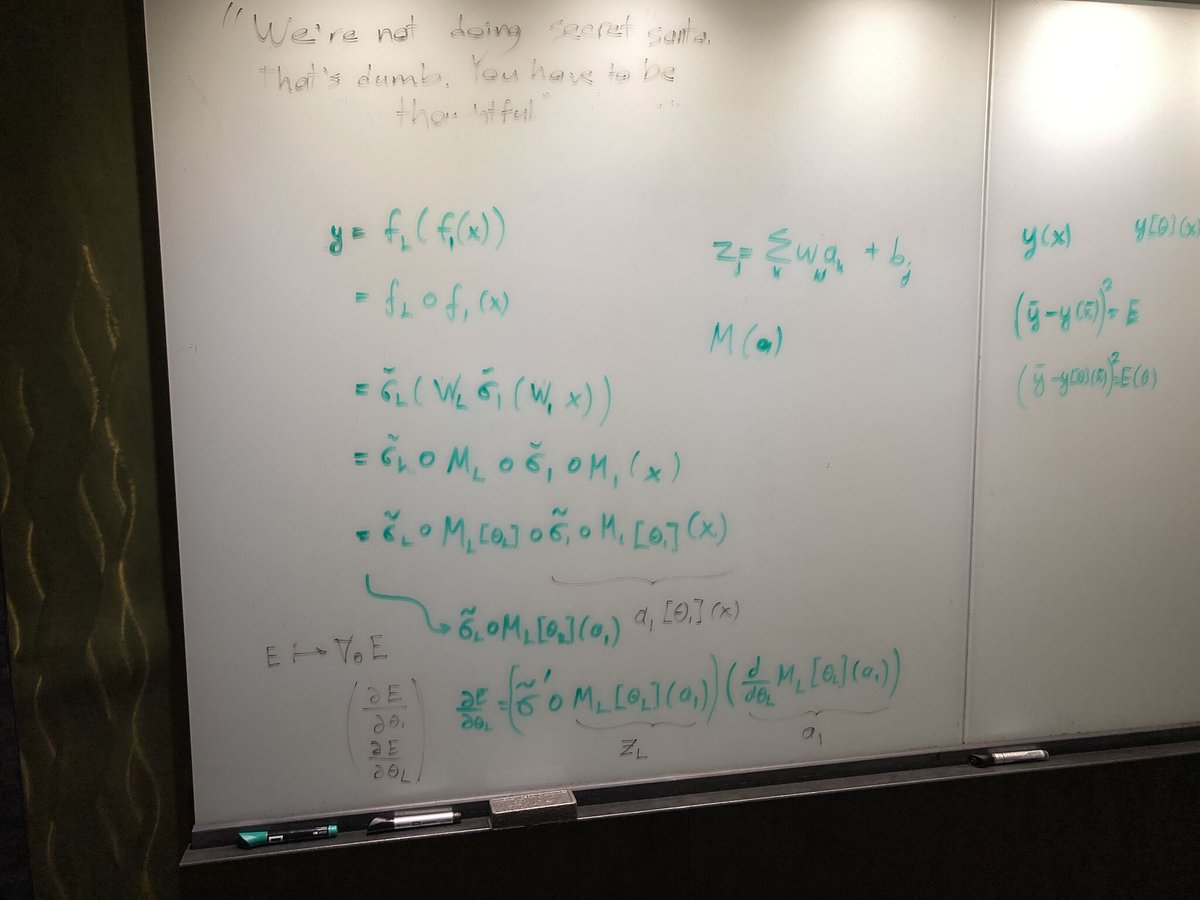 "We're not doing secret santa.
that's dumb. You have to be
thoughtful"
y = f_L(f_1(x))
= f_L ∘ f_1(x)
= σ̃_L(W_L σ̃_1(W_1 x))
= σ̃_L ∘ M_L ∘ σ̃_1 ∘ M_1(x)
= σ̃_L ∘ M_L[θ_L] ∘ σ̃_1 ∘ M_1[θ_1](x)
a_1[θ_1](x)
σ̃_L ∘ M_L[θ_L](a_1)
E ↦ ∇_θ E
(∂E/∂θ_1
∂E/∂θ_L)
∂E/∂θ_L = (σ̃' ∘ M_L[θ_L](a_1)) (d/dθ_L M_L[θ_L](a_1))
z_L
a_1
z_j = Σ_k w_kj a_k + b_j
M(a)
y(x)
y[θ](x)
(ȳ - y(x̄))² = E
(ȳ - y[θ](x̄))² = E(θ)